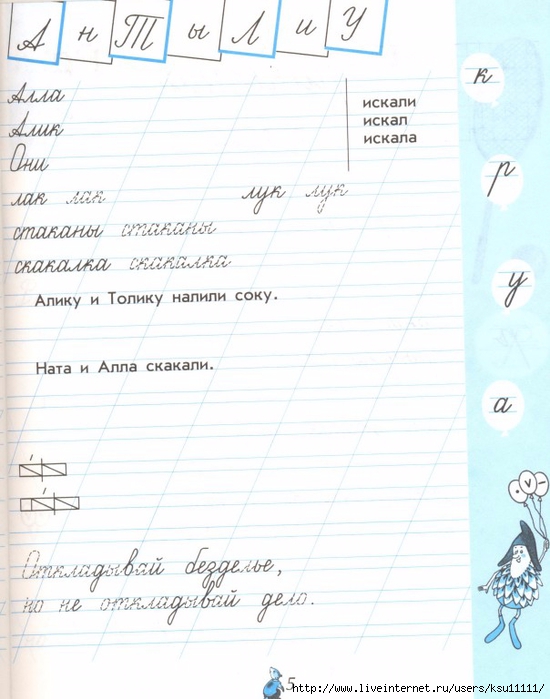 А н Т ы Л и У
Алла
Алик
Они
искали
искал
искала
лак лак лук лук
стаканы стаканы
скакалка скакалка
Алику и Толику налили соку.
Ната и Алла скакали.
Откладывай безделье,
но не откладывай дело.
к
р
у
а
5
http://www.liveinternet.ru/users/ksu11111/